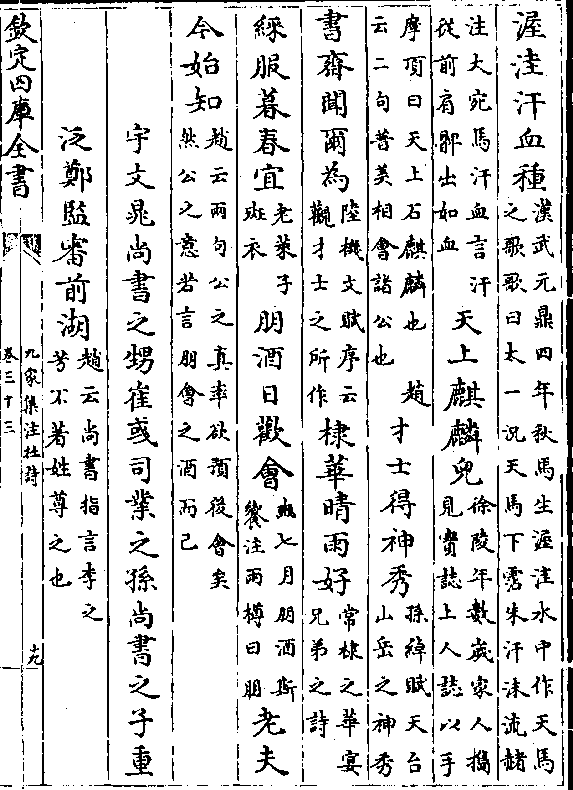 渥洼汗血種漢武元鼎四年秋馬生渥洼水中作天馬
之歌歌曰太一况天馬下霑朱汗沫流赭
注大宛馬汗血言汗
從前肩髆出如血天上麒麟兒徐陵年數歲家人擕
見寳誌上人誌以手
摩頂曰天上石麒麟也 趙
云二句普美相會諸公也才士得神秀孫綽賦天台
山岳之神秀
書齋聞爾為陸機文賦序云
觀才士之所作棣華晴雨好常棣之華宴
兄弟之詩
綵服暮春宜老萊子
斑衣朋酒日歡會豳七月朋酒斯
饗注兩樽曰朋老夫
今始知趙云兩句公之真率欲預後會矣
然公之意若言朋會之酒而已
宇文晁尚書之甥崔彧司業之孫尚書之子重
泛鄭監審前湖趙云尚書指言李之
芳不著姓尊之也
欽定四庫全書
九家集注杜詩
卷三十三
十九